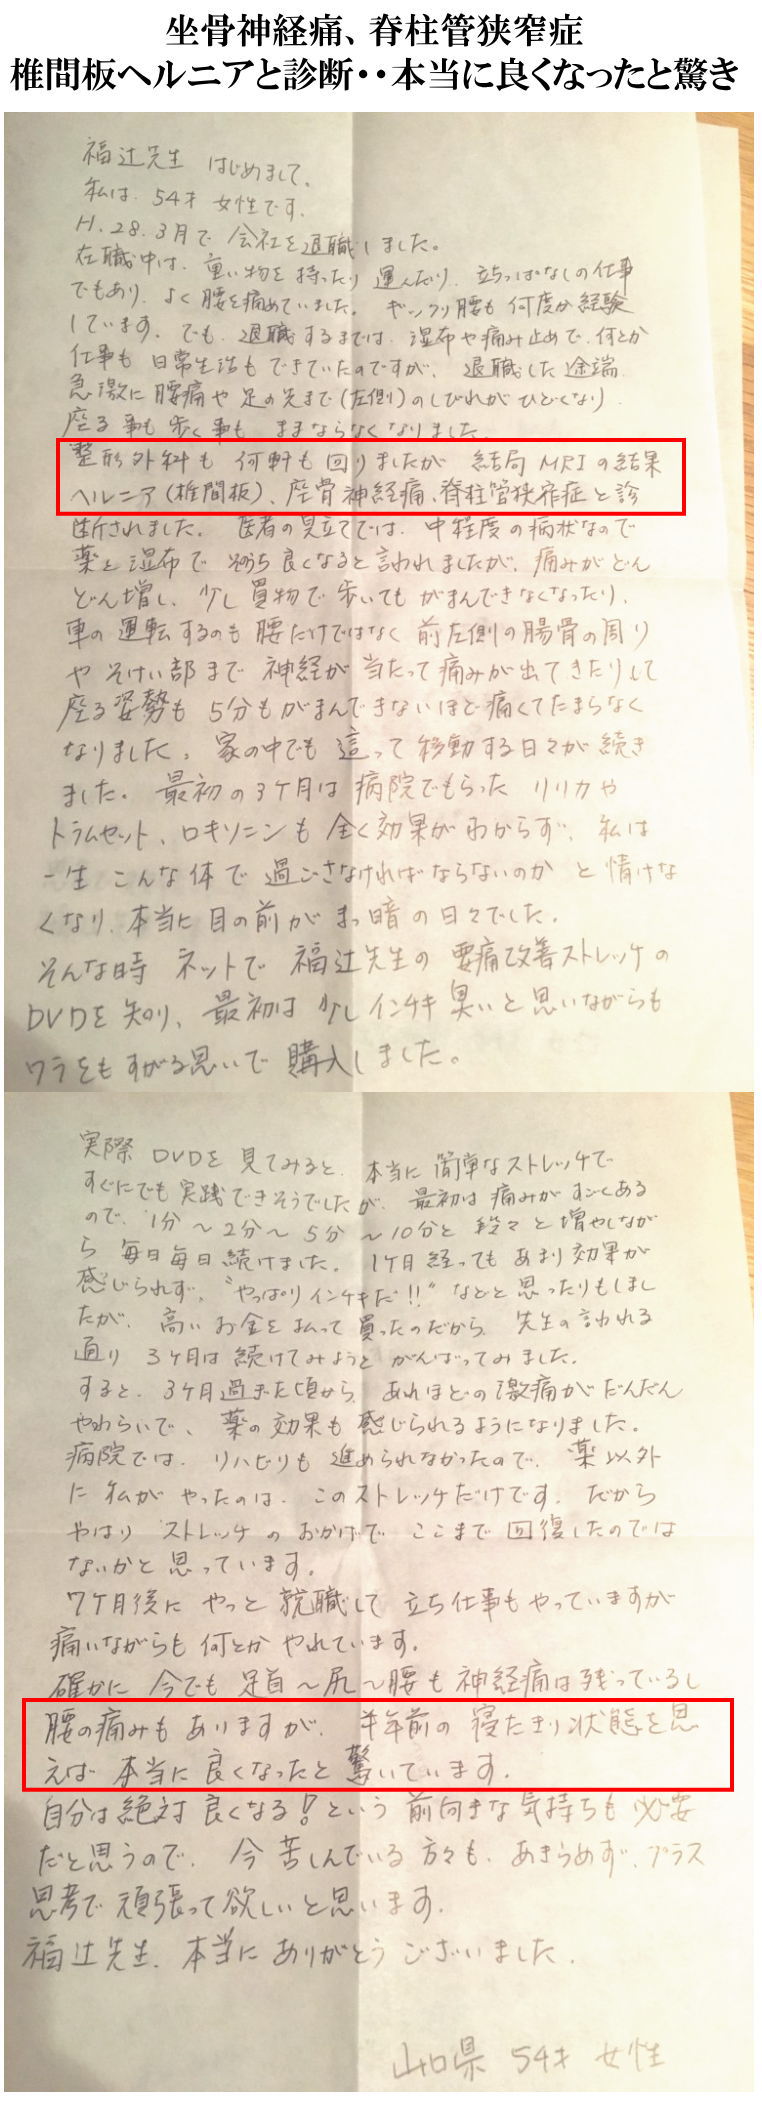 坐骨神経痛、脊柱管狭窄症
椎間板ヘルニアと診断・・本当に良くなったと驚き
福辻先生 はじめまして。
私は、54才 女性です。
H.28.3月で 会社を退職しました。
在職中は、重い物を持ったり 運んだり、立ちっぱなしの仕事
でもあり、よく腰を痛めていました。 ギックリ腰も 何度か経験
しています。でも、退職するまでは、湿布や痛み止めで、何とか
仕事も 日常生活も できていたのですが、 退職した途端、
急激に 腰痛や 足の先まで(左側)のしびれが ひどくなり、
座る 事も 歩く事も ままならなくなりました。
整形外科も 何軒も 回りましたが 結局 MRIの結果
ヘルニア(椎間板)、座骨神経痛、脊柱管狭窄症と診
断されました。 医者の見立てでは、中程度の病状なので
薬と 湿布で そのうち良くなると言われましたが、痛みがどん
どん増し、少し買物で 歩いても がまんできなくなったり、
車の 運転するのも 腰だけではなく 前左側の腸骨の周り
や そけい部まで 神経が 当たって痛みが出てきたりして
座る姿勢も 5分もがまんできないほど 痛くてたまらなく
なりました。 家の中でも 這って 移動する日々が 続き
ました。 最初の3ケ月は 病院でもらった リリカや
トラムセット、ロキソニンも 全く効果がわからず、私は
一生 こんな体で 過ごさなければならないのか と情けな
くなり、本当に 目の前が まっ暗の日々でした。
そんな時 ネットで 福辻先生の 腰痛改善ストレッチの
DVDを 知り、最初は 少しインチキ臭いと思いながらも
ワラをも すがる思いで 購入しました。
実際 DVDを 見てみると、本当に 簡単なストレッチで
すぐにでも 実践できそうでしたが、最初は 痛みがすごくある
ので、1分〜2分〜5分〜10分と 段々と増やしなが
ら 毎日毎日続けました。 1ケ月経っても あまり効果が
感じられず、“やっぱりインチキだ!!”などと思ったりもしまし
たが、高いお金を払って買ったのだから、先生の言われる
通り 3ケ月は 続けてみようと がんばってみました。
すると、3ケ月過ぎた頃から、あれほどの激痛がだんだん
やわらいで、薬の効果も 感じられるようになりました。
病院では、リハビリも 進められなかったので、薬以外
に 私が やったのは、このストレッチだけです。だから
やはり ストレッチ の おかげで ここまで 回復したのでは
ないかと 思っています。
7ケ月後に やっと 就職して 立ち仕事もやっていますが
痛いながらも 何とか やれています。
確かに 今でも 足首〜尻〜腰も 神経痛は残っているし
腰の痛みも ありますが、半年前の 寝たきり状態を思
えば 本当に 良くなったと 驚いています。
自分は絶対 良くなる!という 前向きな 気持ちも 必要
だと思うので、今 苦しんでいる 方々も、あきらめず、プラス
思考で 頑張って 欲しいと思います。
福辻先生、本当に ありがとう ございました。
山口県 54才 女性